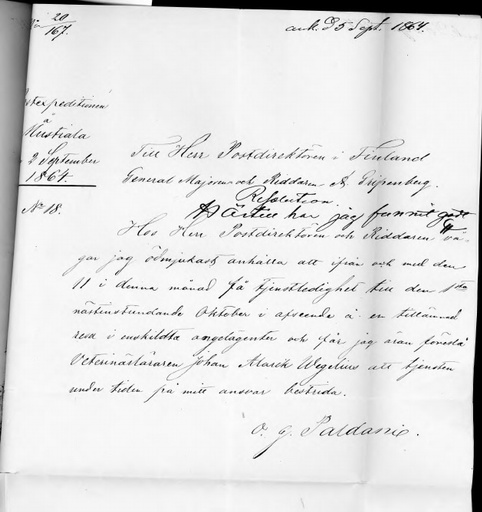 No 20/167.
ank. d 5 Sept. 1864.
Postexpeditionen
å
Mustiala
2 September
1864.
No 18.
Till Herr Postdirektören i Finland
General Majoren och Riddaren A. Gripenberg.
Resolution.
Härtill har jag funnit godt
Hos Herr Postdirektören och Riddaren vå-
gar jag ödmjukast anhålla att ifrån och med den
11 i denna månad få tjenstledighet till den 1sta
nästinstundande Oktober i afseende å en tillämnad
resa i enskildta angelägenheter och får jag äran föreslå
Veterinärläraren Johan Alarik Wegelius att tjensten
under tiden på mitt ansvar bestrida.
O. G. Paldani